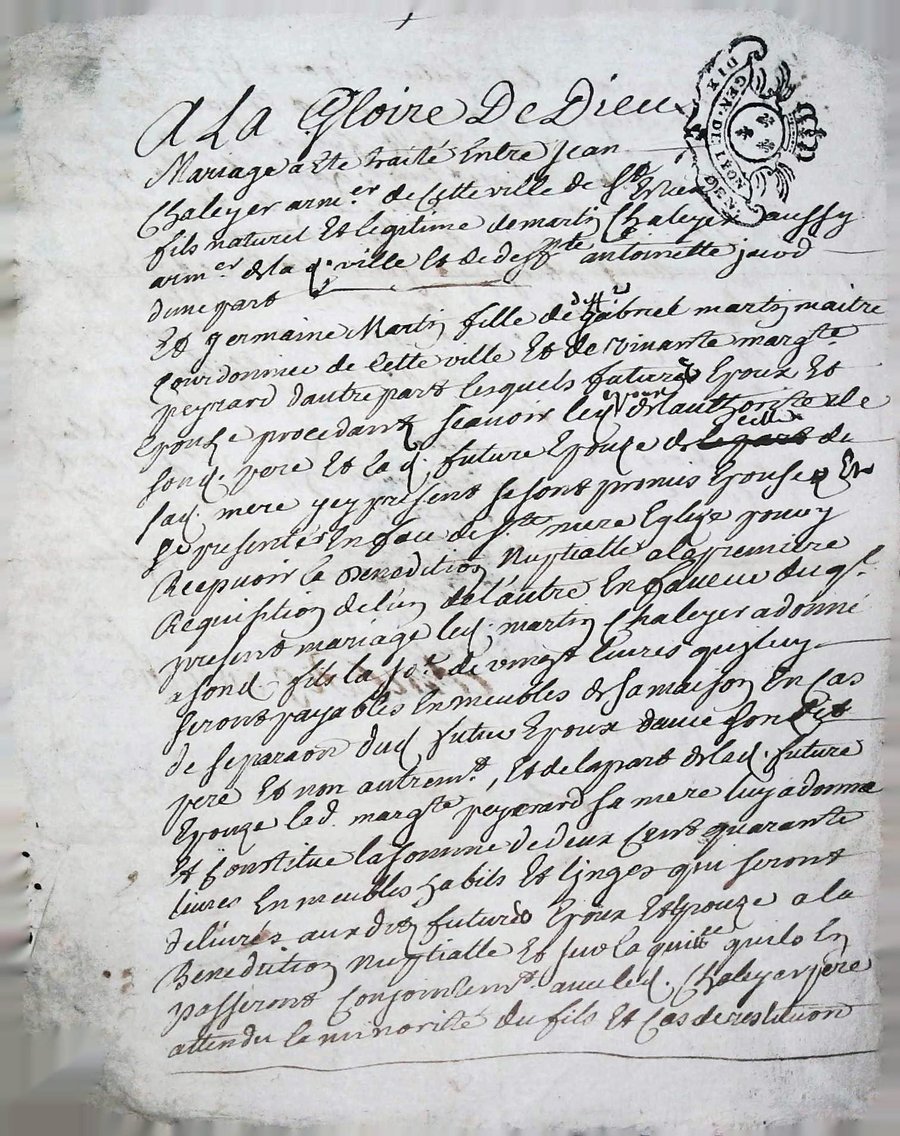 A La Gloire De Dieu
GEN. DE LYON
DIX DEN.
Mariage a Ete traité Entre Jean
Chaleyer arm.er de Cette ville de St Etienne
fils naturel Et legitime de martin Chaleyer aussy
arm.er de la d. ville Et de deffte antoinette jacod
dune part
Et germaine Martin fille de deffu gabriel martin maitre
Courdonnier de Cette ville Et de vivante margte
peyrard dautre part lesquels futurs Epoux Et
Epouze procedant scavoir led epoux de lauthorité de
sond. pere Et lad. future Epouze de celle de
sad. mere ycy present se sont promis Epouser Et
se presenter En face de Ste mere Eglize pour y
Recepvoir la Benediction Nuptialle a la premiere
Requisition de lun de lautre En faveur du ql
present mariage led. martin Chaleyer a donné
a sond fils la so.e de vingt livres quy luy
seront payables En meubles de sa maison En Cas
de separaon dud futur Epoux davec son dit
pere Et non autremt, Et de la part de lad. future
Epouze lad. margte peyrard sa mere luy a donné
Et Constitue la somme de deux Cent quarante
livres En meubles habits Et linges qui seront
delivrés aux dits futurs Epoux Et Epouze a la
Benediction Nuptialle Et sur la quitte quils En
passeront Conjointemt avec led. Chaleyer pere
attendu la minorité du fils Et Cas de restitution